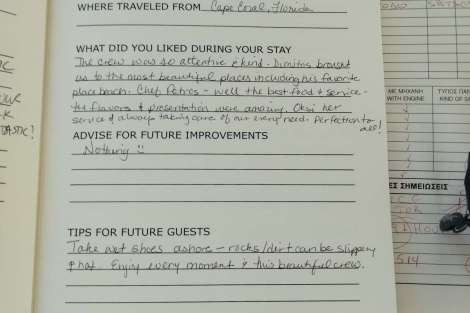 WHERE TRAVELED FROM Cape Coral, Florida
WHAT DID YOU LIKED DURING YOUR STAY
The crew was so attentive & kind. Dimitris brought
us to the most beautiful places including his favorite
place/beach. Chef Petros - well the best food & service -
the flavors & presentation were amazing. Oksi her
service & always taking care of our every need. Perfection to
all!
ADVISE FOR FUTURE IMPROVEMENTS
Nothing
TIPS FOR FUTURE GUESTS
Take wet shoes ashore - rocks/dirt can be slippery
& hot. Enjoy every moment & this beautiful crew.
ΜΕ ΜΗΧΑΝΗ
WITH ENGINE
ΤΥΠΟΣ
KIND OF
ΕΣ ΣΗΜΕΙΩΣΕΙΣ